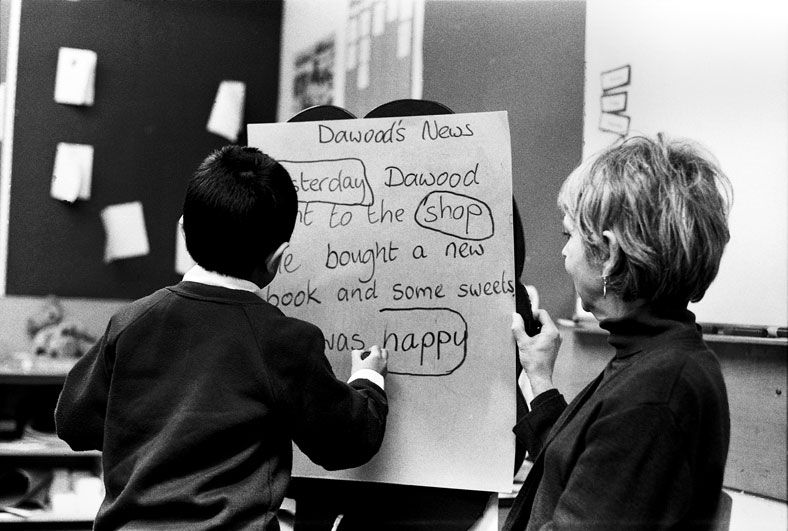 Dawood's News
sterday Dawood
nt to the shop
e bought a new
book and some sweets.
was happy